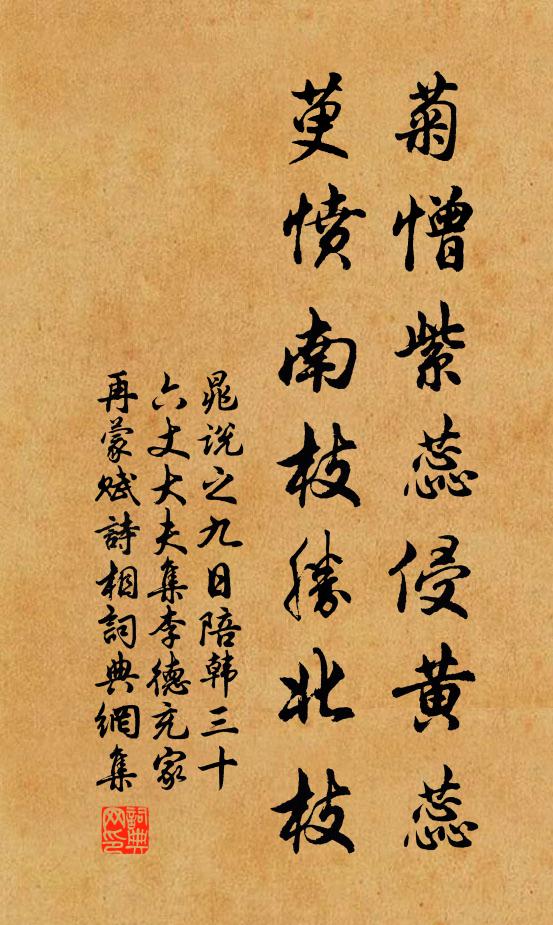 菊憎紫蕊侵黄蕊
萸愤南枝勝北枝
晁说之九日陪韩三十
六丈大夫集李德充家
再蒙赋詩相詞典網集
詞典网印